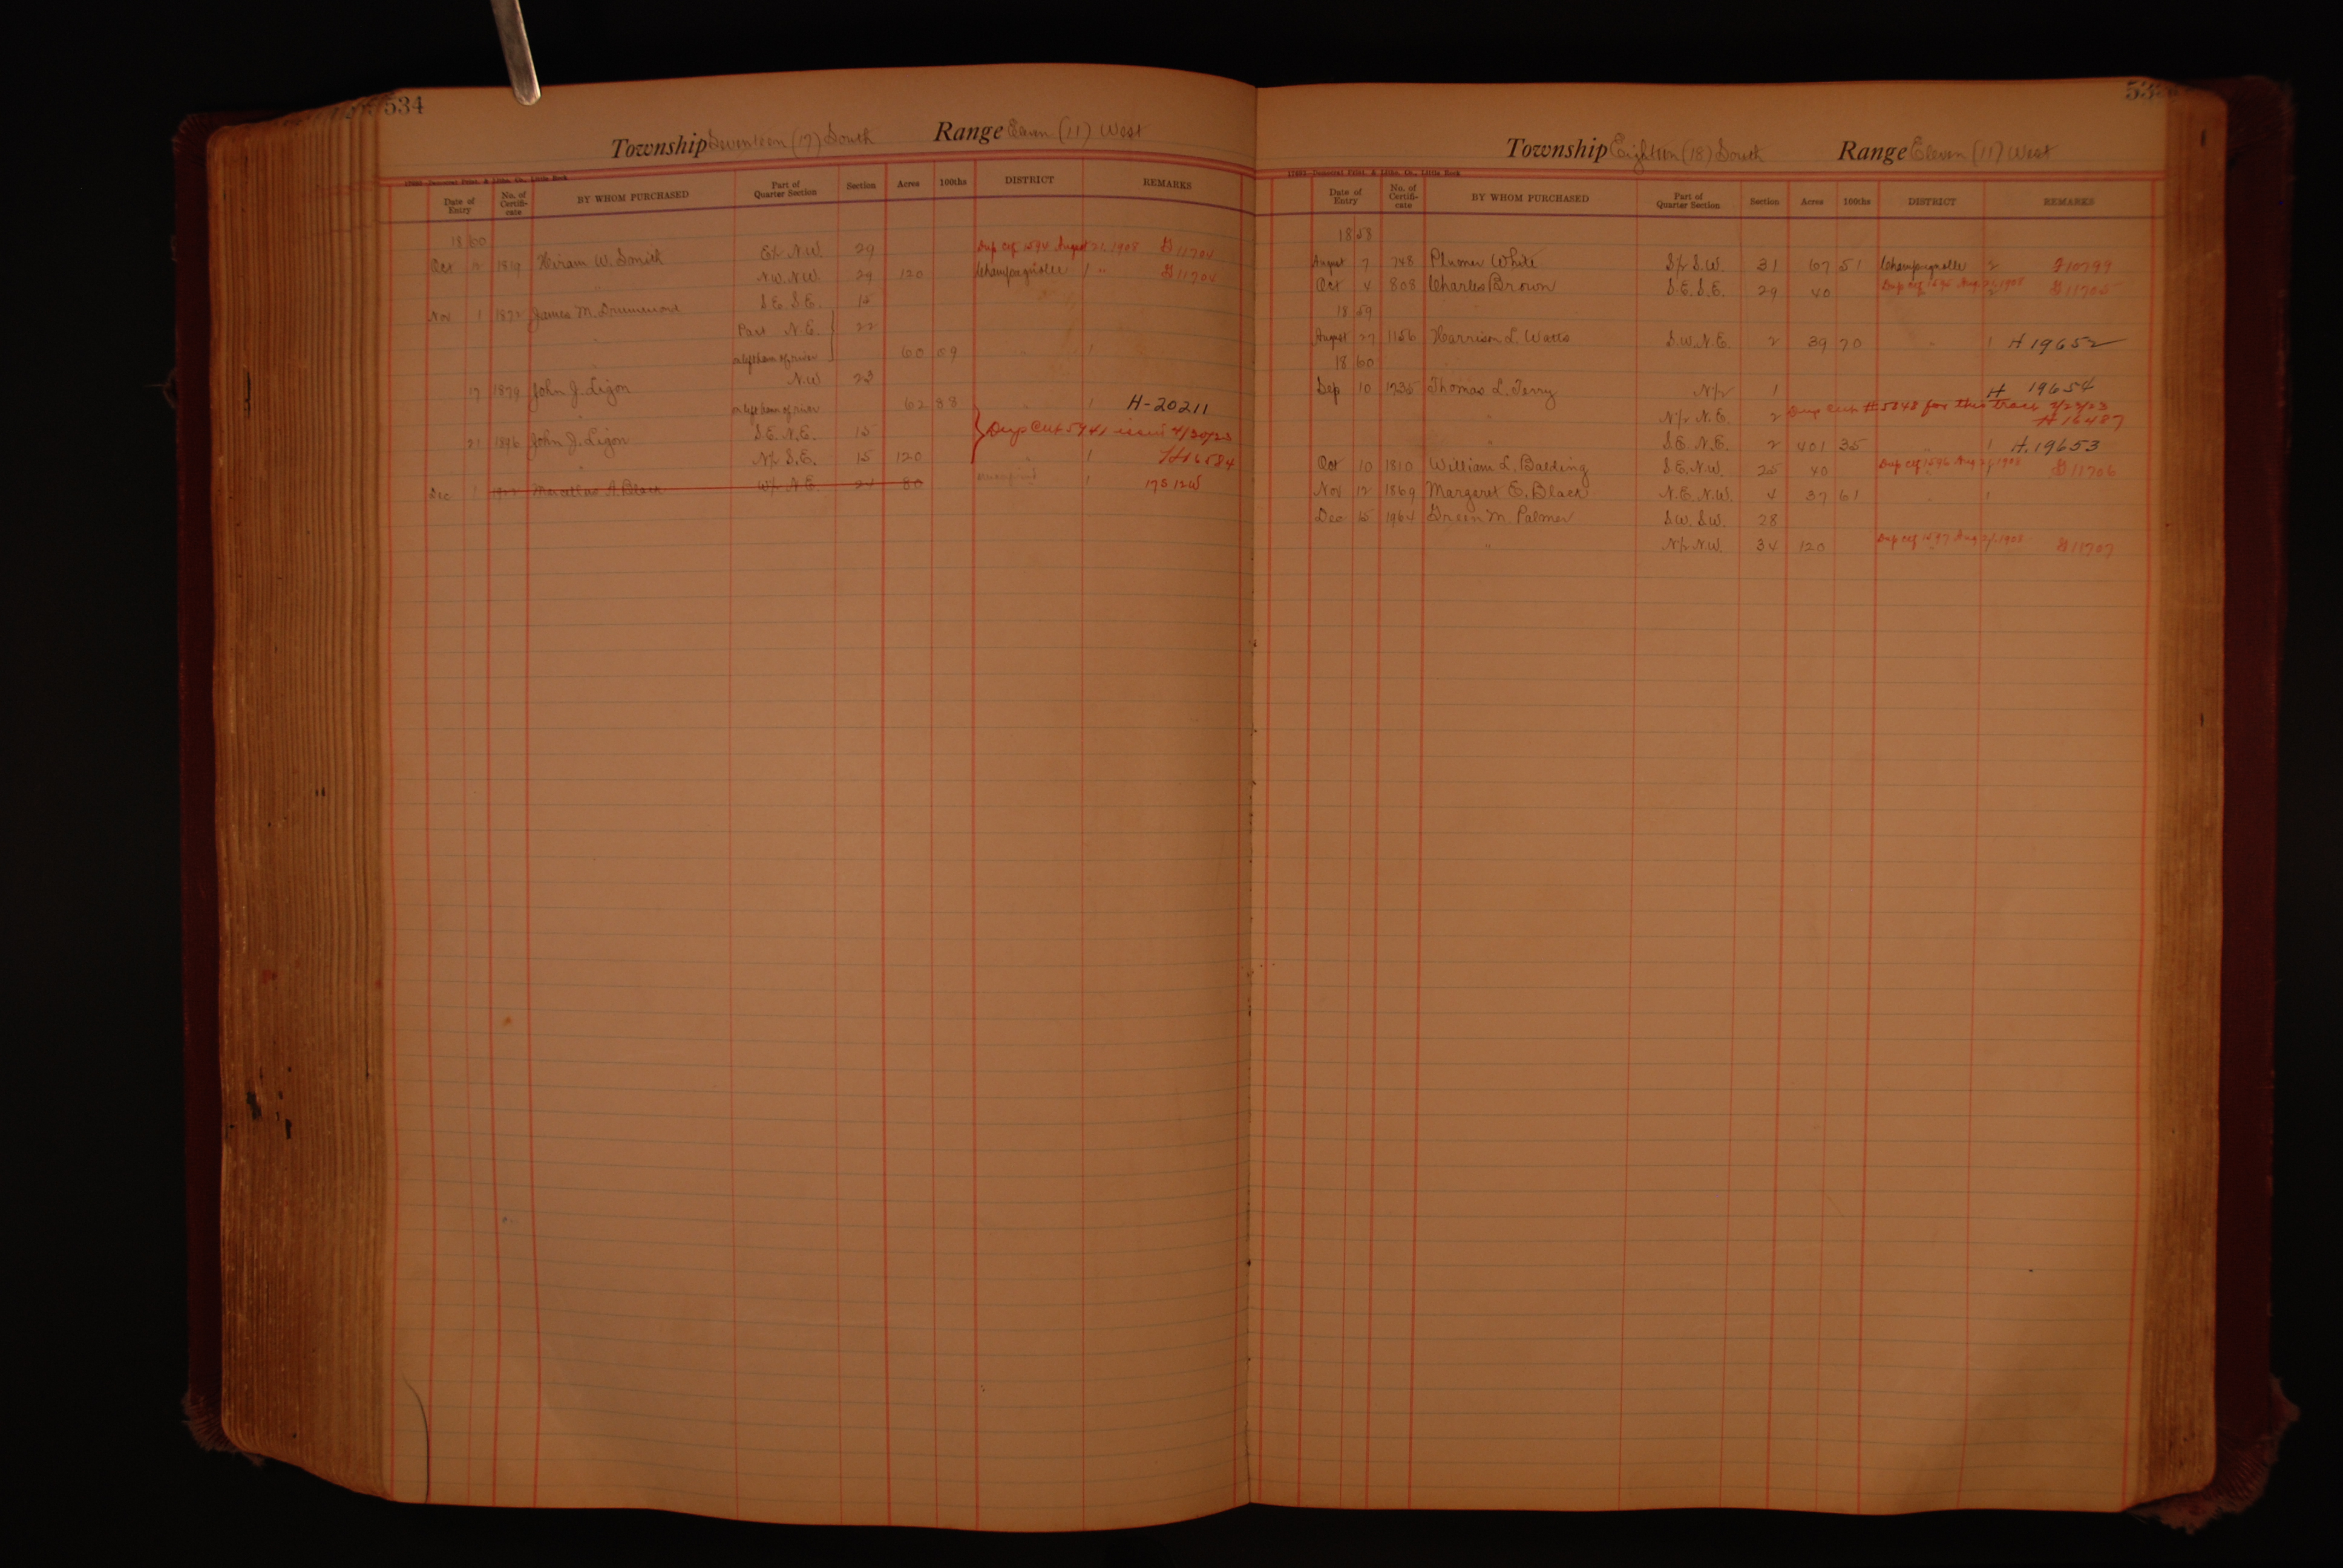 534
Township Seventeen (17) South Range Eleven (11) West
Date of Entry No. of Certificate BY WHOM PURCHASED Part of Quarter Section Section Acres 100ths DISTRICT REMARKS
1860
Dup cef 1594 August 21, 1908 G 11704
Oct 1819 Hiram W. Smith E½ N.W. 29
" N.W. N.W. 29 120 Champagnolle 1 " G 11704
Nov 1 1872 James M. Drummond S.E. S.E. 15
" Part N.E. 22
on left bank of river 60 69 " 1
17 1879 John J. Ligon N.W 23
on left bank of river 62 88 " 1 H-20211
21 1896 John J. Ligon S.E. N.E. 15 Dup Cert 5941 issued 4/30/23
" N½ S.E. 15 120 " 1 H16584
Dec 1 1922 Marcellus A. Black W½ N.E. 24 80 1 17S 12W
Township Eighteen (18) South Range Eleven (11) West
Date of Entry No. of Certificate BY WHOM PURCHASED Part of Quarter Section Section Acres 100ths DISTRICT REMARKS
1858
August 7 748 Plumer White S½ S.W. 31 67 51 Champagnolle 2 G10799
Oct 4 808 Charles Brown S.E. S.E. 29 40 Dup cef 1595 Aug 21, 1908 2 G11705
1859
August 27 1156 Harrison L. Watts S.W. N.E. 2 39 70 " 1 H 19652
1860
Sep 10 1735 Thomas L. Terry N½ 1 H 19654
" N½ N.E. 2 Dup Cert #5848 for this tract 2/23/23
H 16487
" S.E. N.E. 2 401 35 " 1 H.19653
Oct 10 1810 William L. Balding S.E. N.W. 25 40 Dup cef 1596 Aug 21, 1908 G11706
Nov 12 1869 Margaret E. Black N.E. N.W. 4 37 61 " 1
Dec 15 1964 Green M. Palmer S.W. S.W. 28
" N½ N.W. 34 120 Dup cef 1597 Aug 21, 1908 G11707